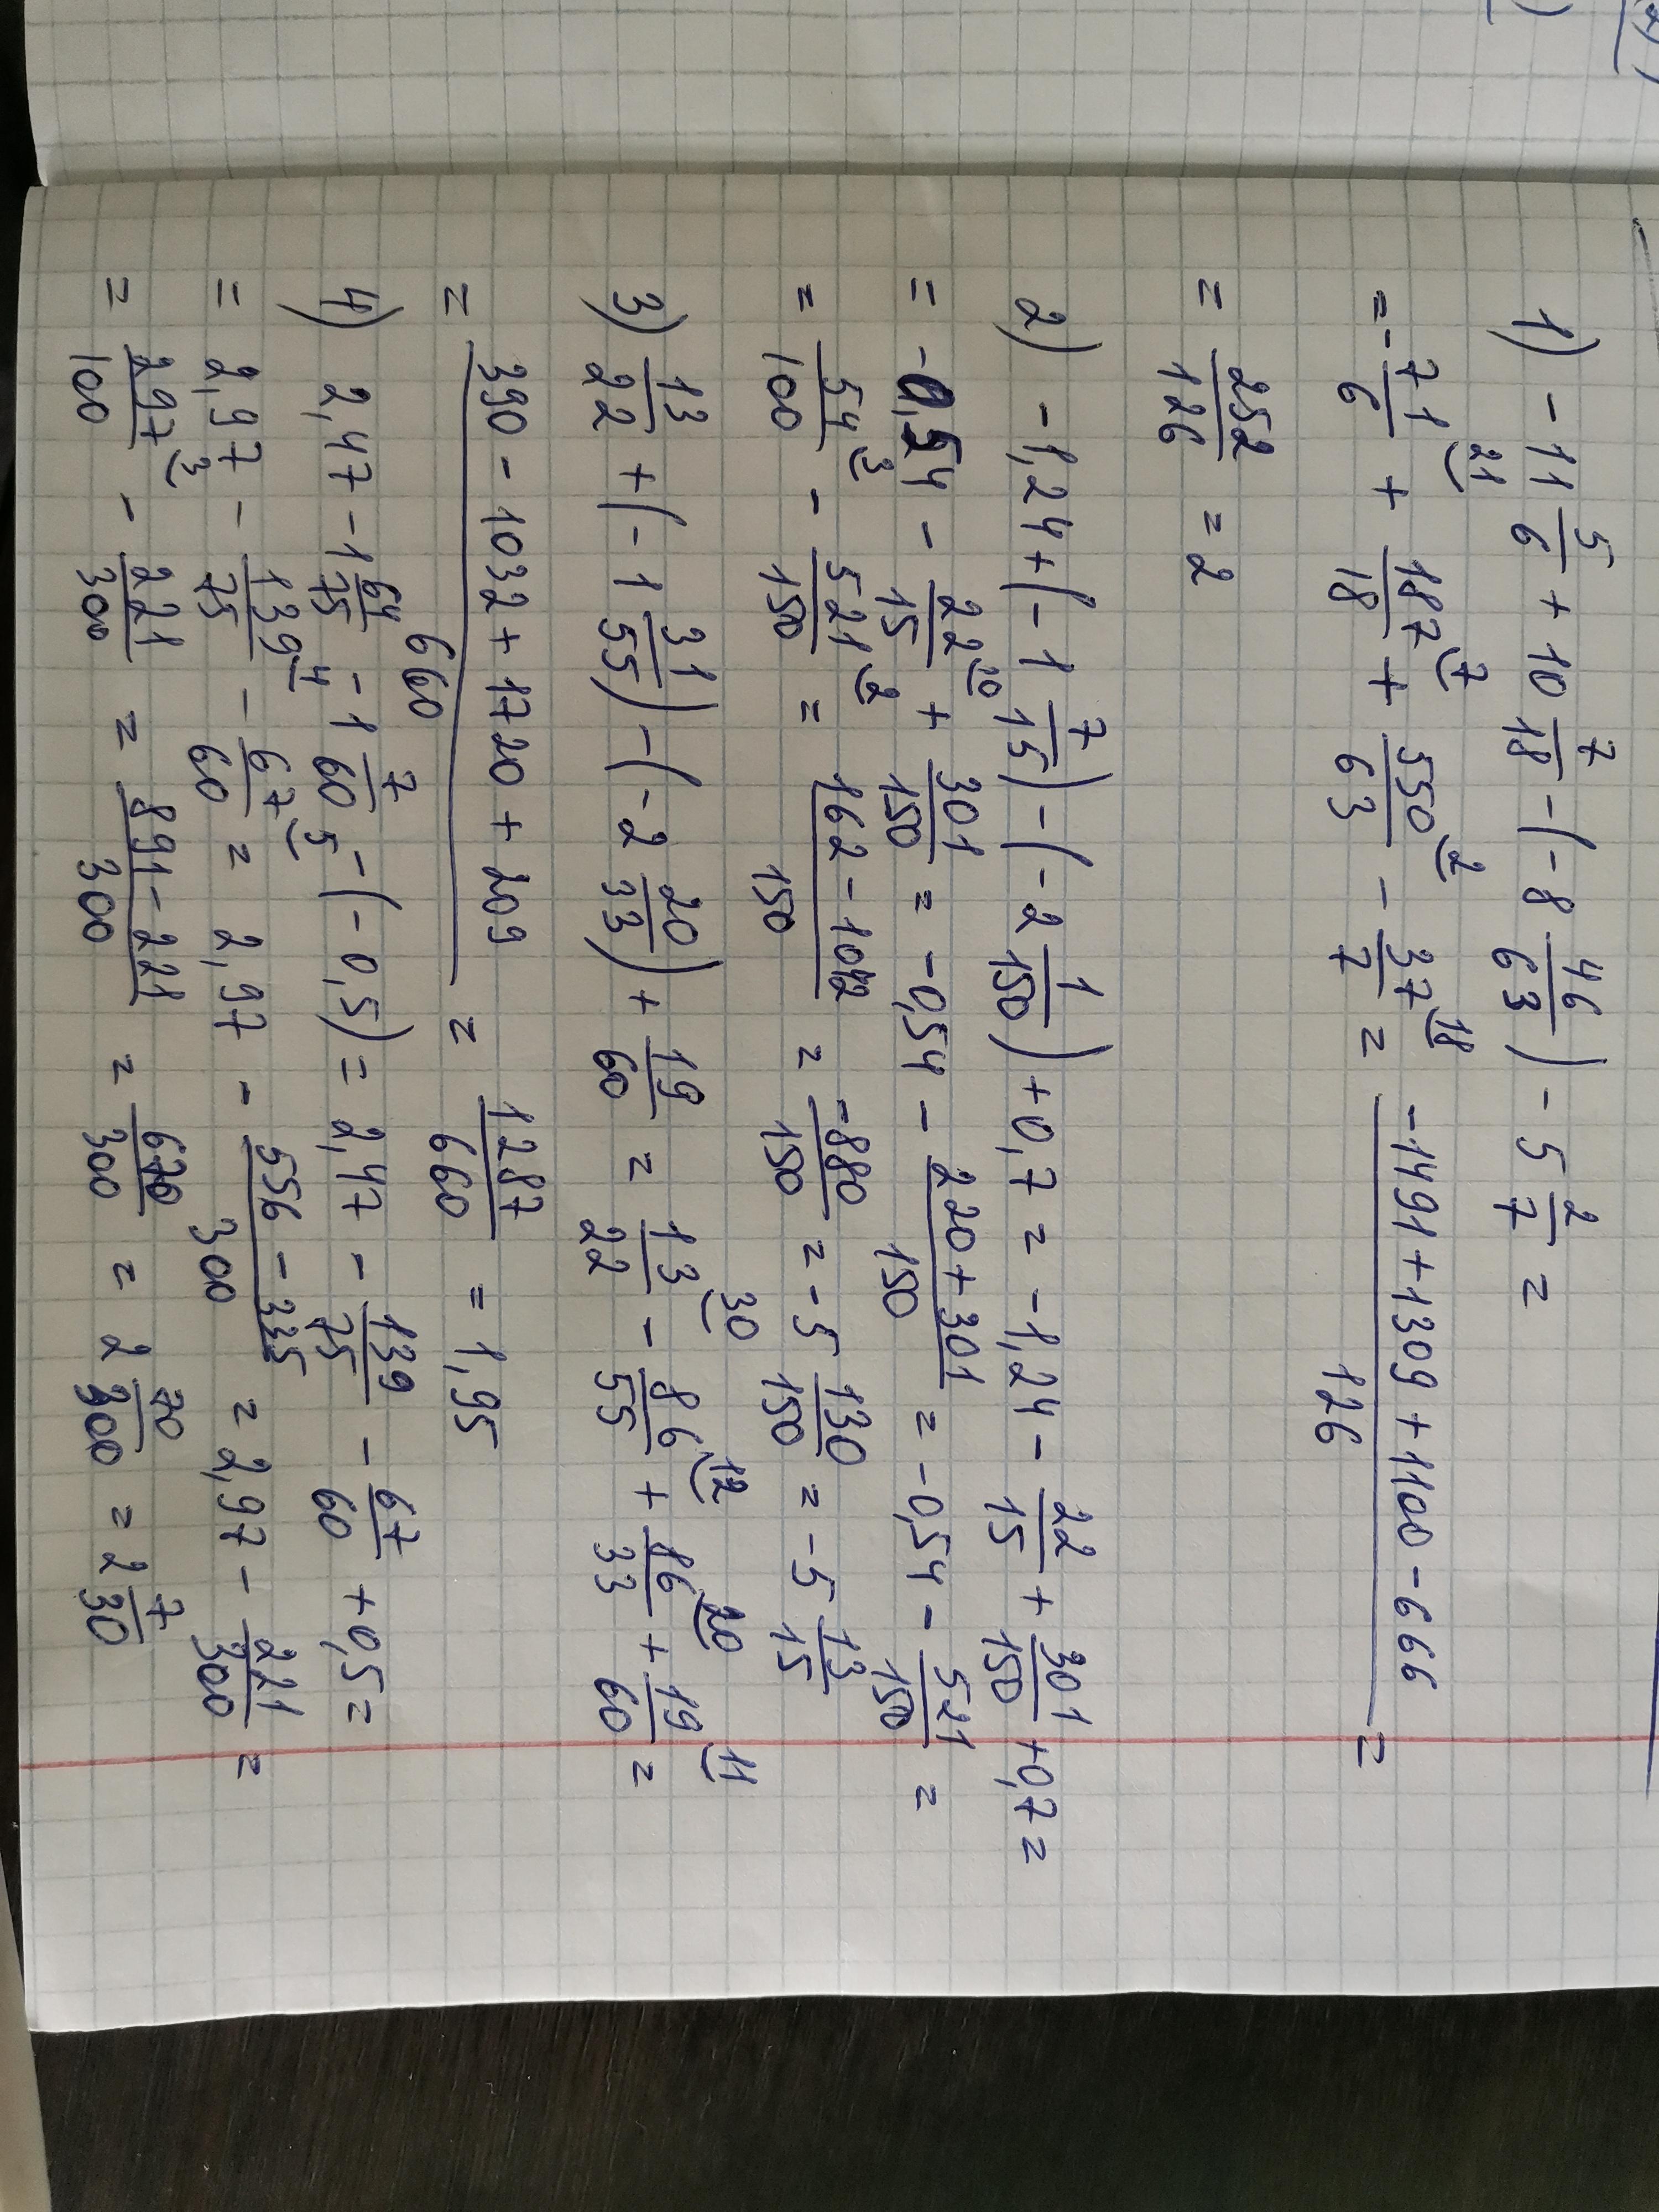 1) -11 5/6 + 10 7/18 - (-8 46/63) - 5 2/7 =
= -71/6 (21 + 187/18 (7 + 550/63 (2 - 37/7 (18 = (-1491 + 1309 + 1100 - 666)/126 =
= 252/126 = 2
2) -1,24 + (-1 7/15) - (-2 1/150) + 0,7 = -1,24 - 22/15 + 301/150 + 0,7 =
= -0,54 - 22/15 (10 + 301/150 = -0,54 - (220 + 301)/150 = -0,54 - 521/150 =
= 54/100 (3 - 521/150 (2 = (162 - 1042)/150 = -880/150 = -5 130/150 = -5 13/15
3) 13/22 + (-1 31/55) - (-2 20/33) + 19/60 = 13/22 (30 - 86/55 (12 + 86/33 (20 + 19/60 (11 =
= (390 - 1032 + 1720 + 209)/660 = 1287/660 = 1,95
4) 2,47 - 1 64/75 - 1 7/60 - (-0,5) = 2,47 - 139/75 - 67/60 + 0,5 =
= 2,97 - 139/75 (4 - 67/60 (5 = 2,97 - (556 - 335)/300 = 2,97 - 221/300 =
= 297/100 (3 - 221/300 = (891 - 221)/300 = 670/300 = 2 70/300 = 2 7/30